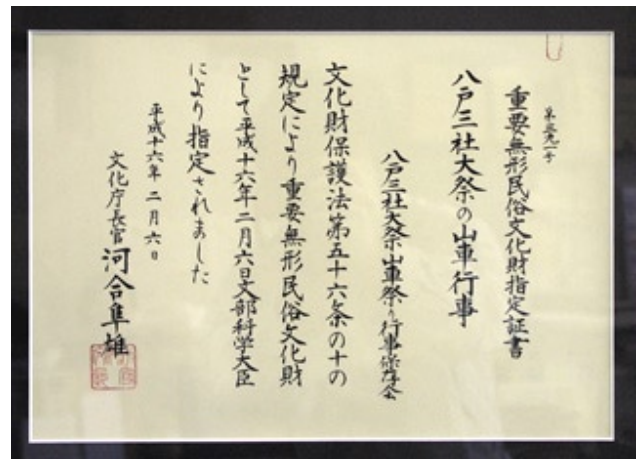 重要無形民俗文化財指定証書
八戸三社大祭の山車行事
八戸三社大祭山車祭り行事保存会
文化財保護法第五十六条の十の
規定により重要無形民俗文化財
として平成十六年二月六日文部科学大臣
により指定されました
平成十六年二月六日
文化庁長官 河合隼雄